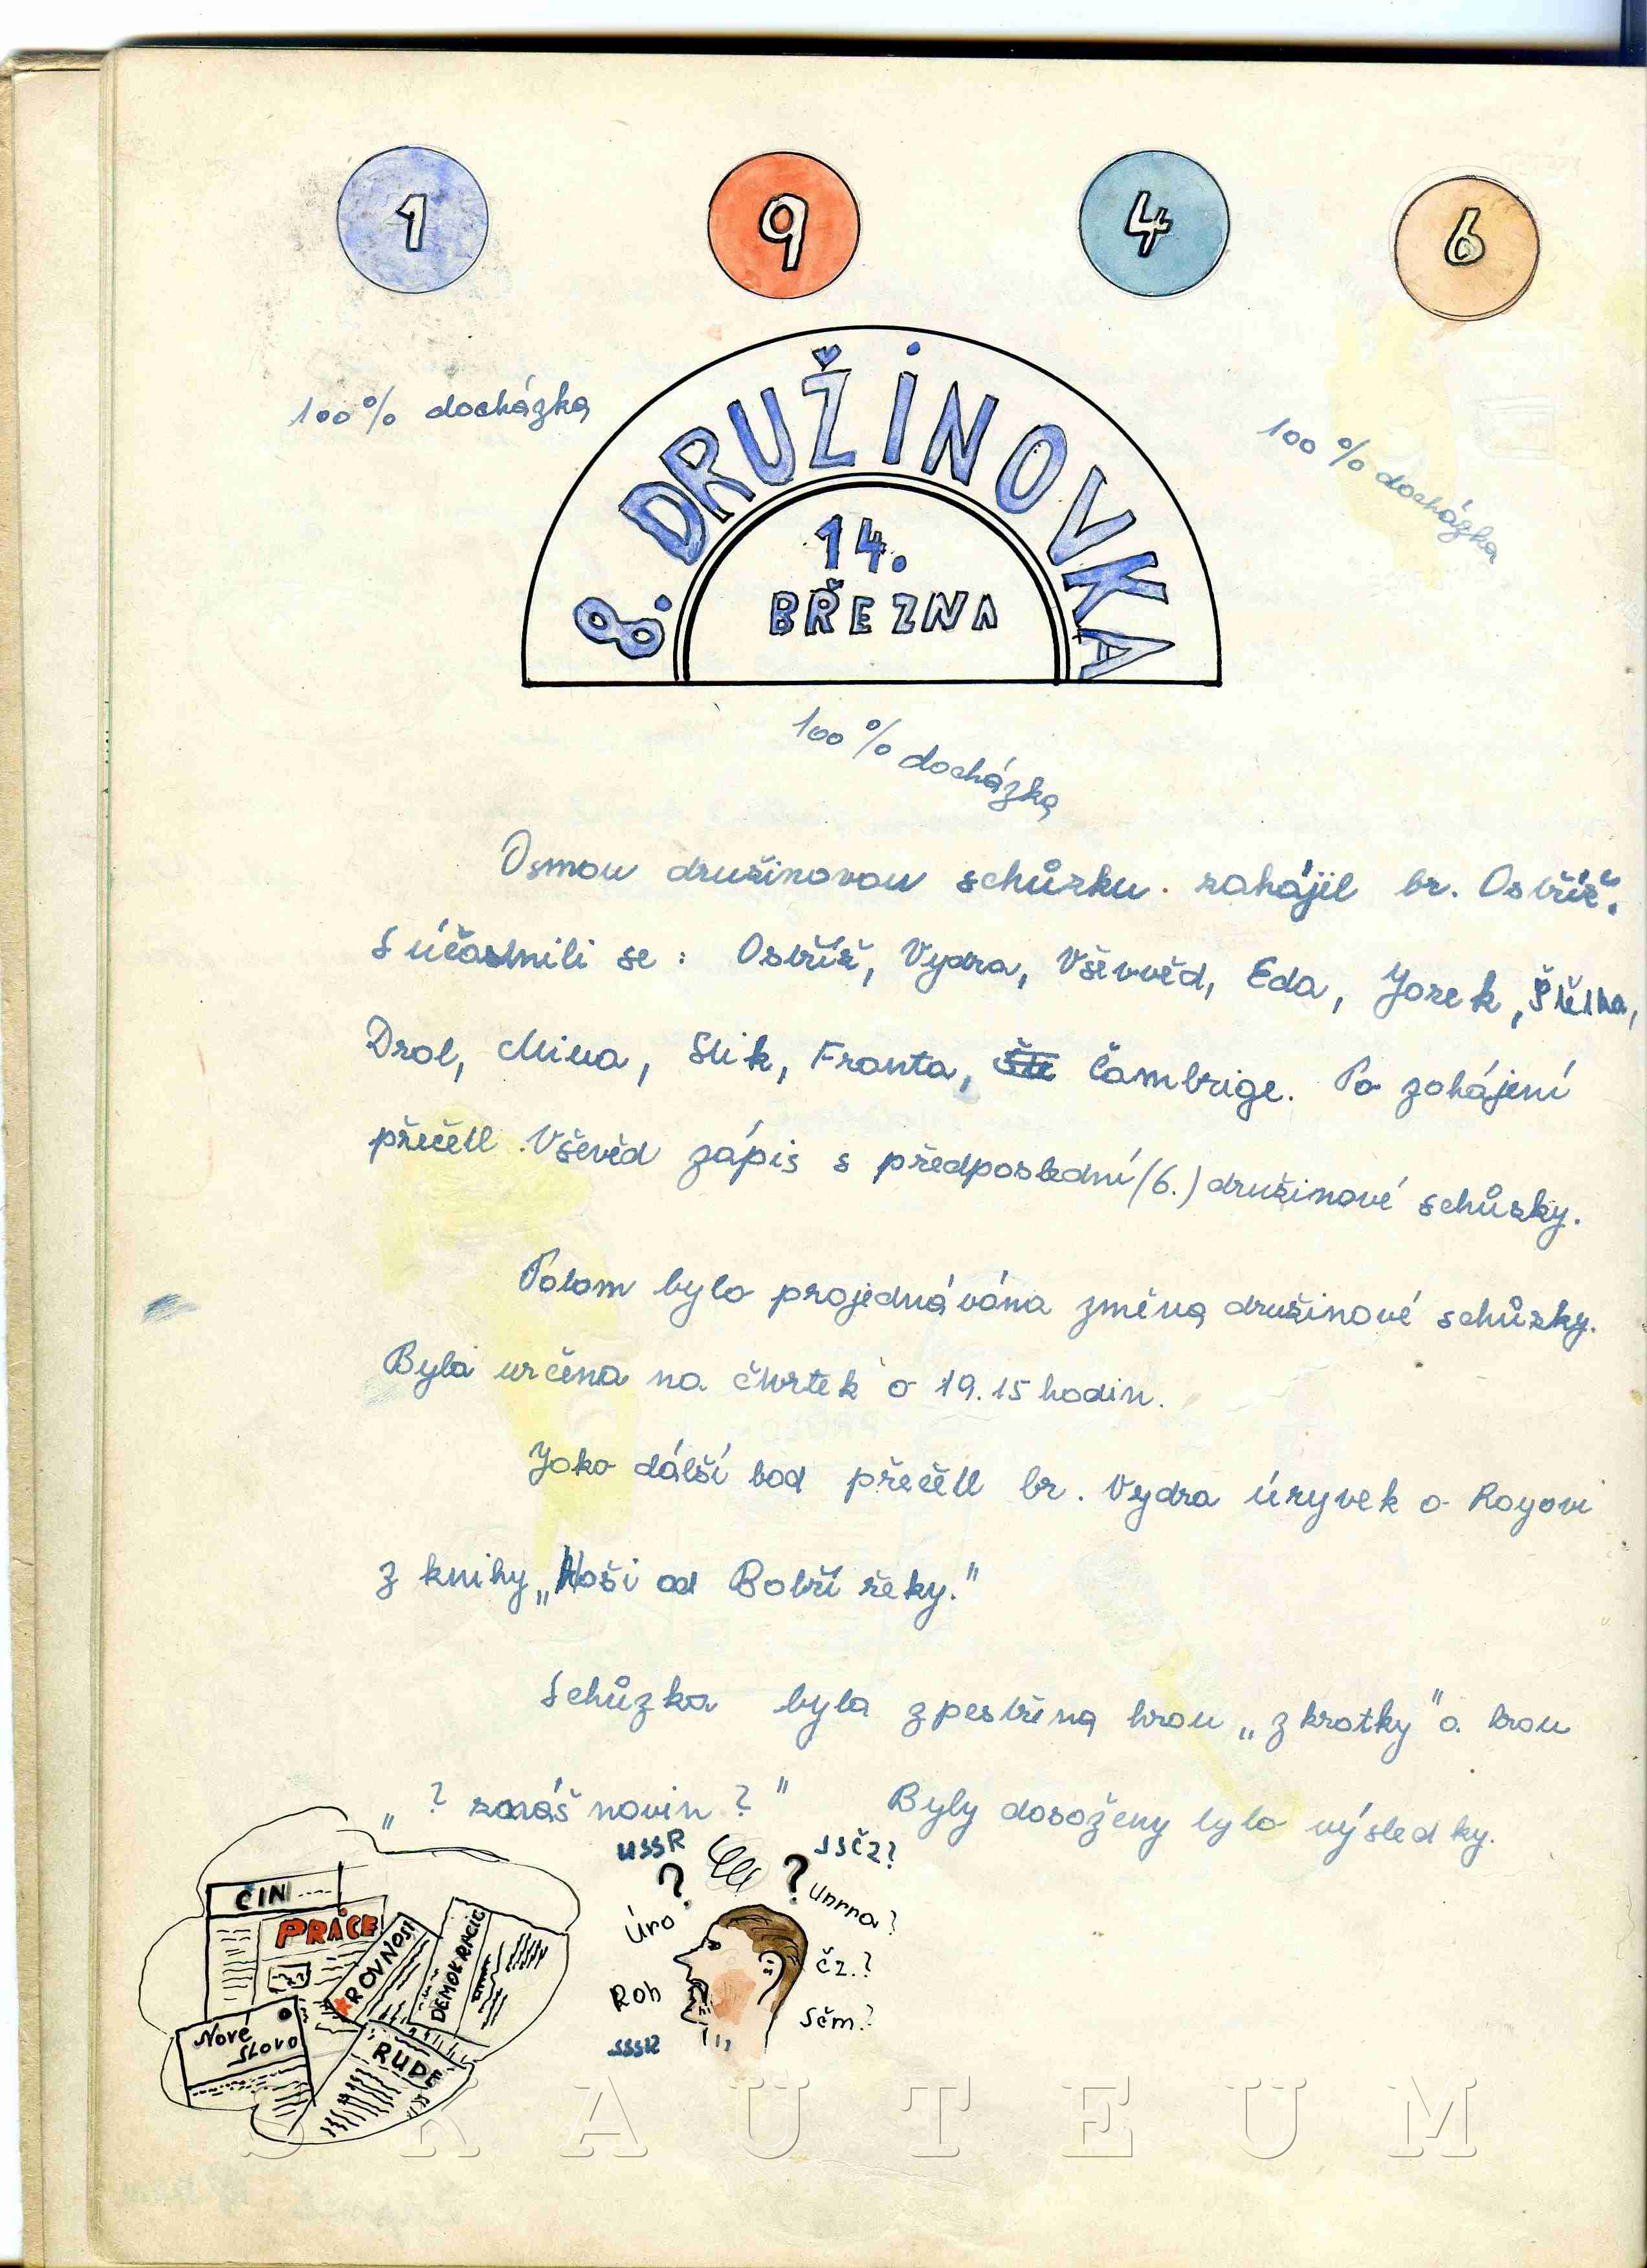 1 9 4 6
8. DRUŽINOVKA
14.
BŘEZNA
100% docházka
100% docházka
100% docházka
Osmou družinovou schůzku zahájil br. Ostříž.
Súčastnili se: Ostříž, Vydra, Vševvěd, Eda, Jorek,
Drol, Mina, Slik, Franta, Čambrige. Po zohájení
přečetl Vševěd zápis s předposlední (6.) družinové schůzky.
Potom bylo projednávána změna družinové schůzky.
Byla určena na čtvrtek o 19.15 hodin.
Joko dálší bod přečetl br. Vydra úryvek o Royovi
z knihy „Hoši od Bobří řeky."
Schůzka byla zpestřena hrou „zkrotky" a hrou
„? znáš novin ?" Byly dosoženy výsledky.
ČIN
PRÁCE
ROVNOST
DEMOKRACIE
Nové
SLOVO
RUDE
USSR
?
?
SSČZ?
Úro
Unrra?
Roh
Čz.?
SSSR
Sčm?
SKAUTEUM